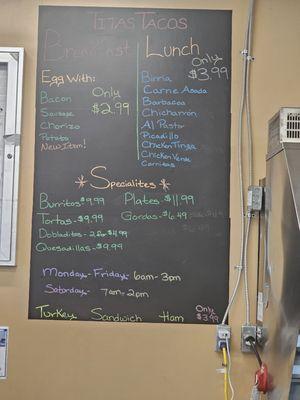 TITAS TACOS
Breakfast
Lunch
Only
$3.99
Egg With:
Bacon
Sausage
Chorizo
Potato
New Item!
Only
$2.99
Birria
Carne Asada
Barbacoa
Chicharrón
Al Pastor
Picadillo
Chicken Tinga
Chicken Verde
Carnitas
Specialites
Burritos $9.99
Plates- $11.99
Tortas- $9.99
Gordas- $6.49
Dobladitos- 2 for $4.99
Quesadillas- $9.99
Monday-Friday- 6am-3pm
Saturday- 7am-2pm
Turkey Sandwich Ham
Only
$3.99